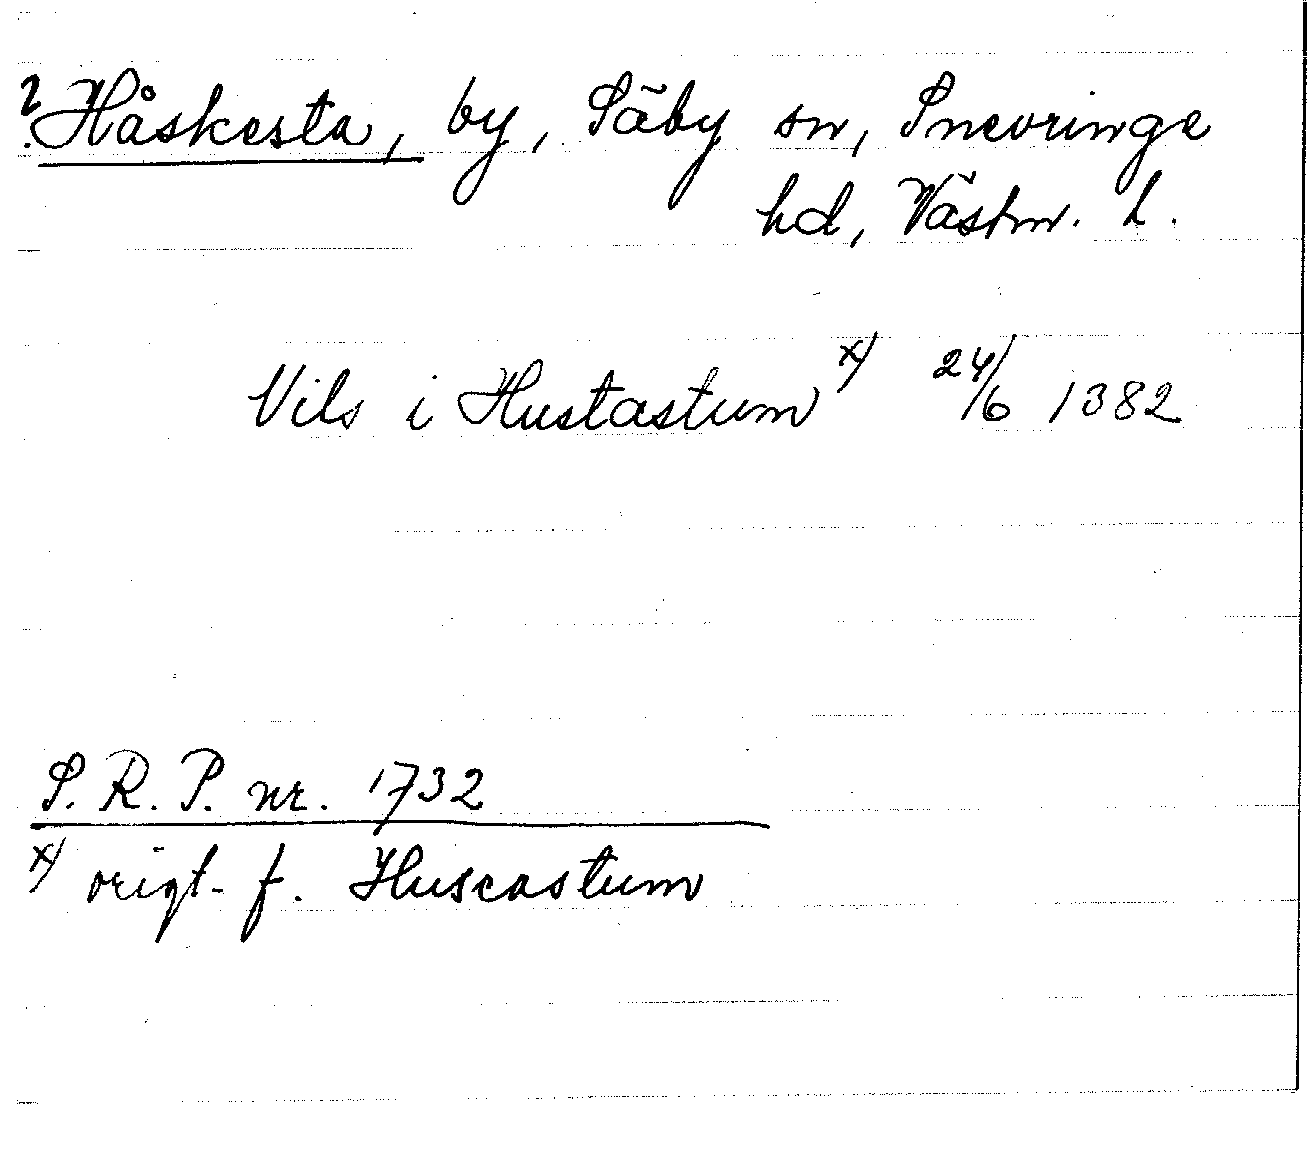 ? Håskesta, by, Säby sn, Snevringe
hd, Västm. L.
Nils i Hustastum x) 24/6 1382
S. R. P. nr. 1732
x) origt. f. Huscastum